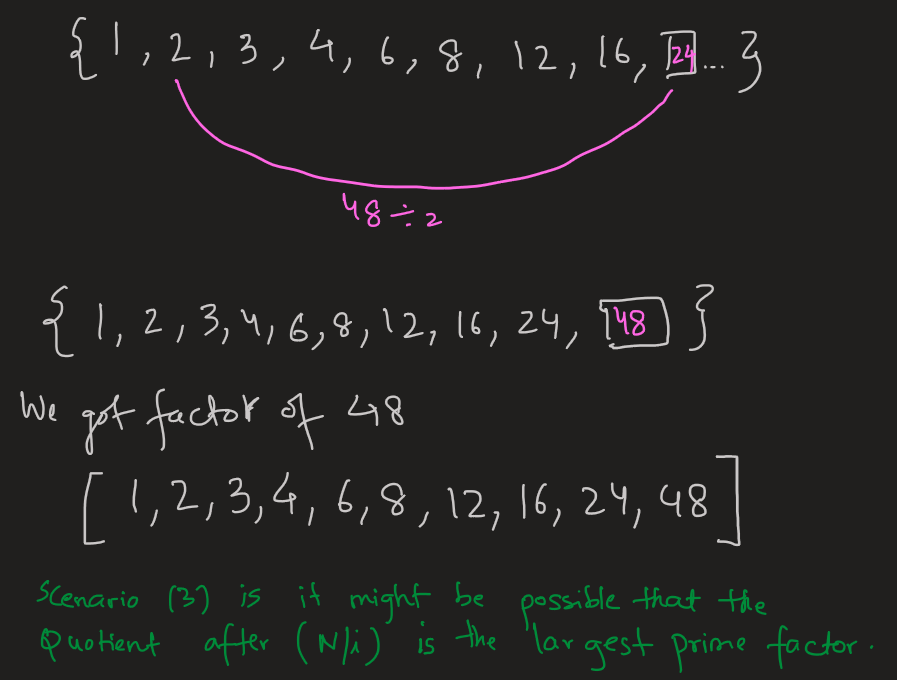 { 1, 2, 3, 4, 6, 8, 12, 16, 24 ... }
48 ÷ 2
{ 1, 2, 3, 4, 6, 8, 12, 16, 24, 48 }
We got factor of 48
[ 1, 2, 3, 4, 6, 8, 12, 16, 24, 48 ]
Scenario (3) is it might be possible that the
Quotient after (N/i) is the largest prime factor.